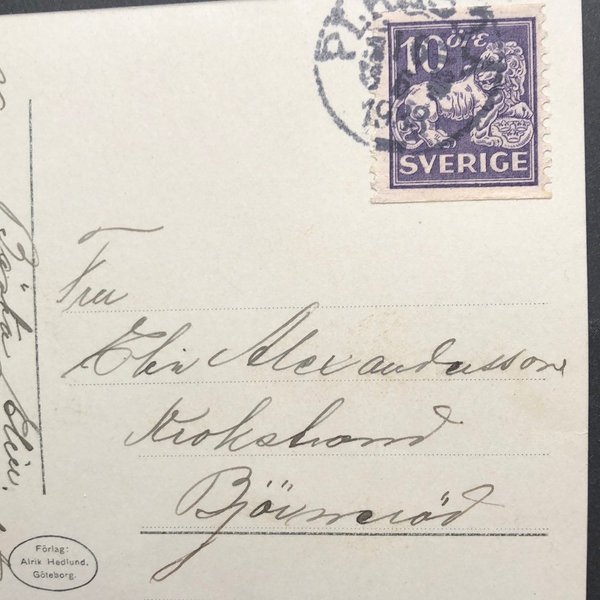 10 ÖRE
SVERIGE
Fru
Elin Alexandersson
Krokstrand
Björneröd
Bästa Elin.
Förlag:
Alrik Hedlund,
Göteborg.